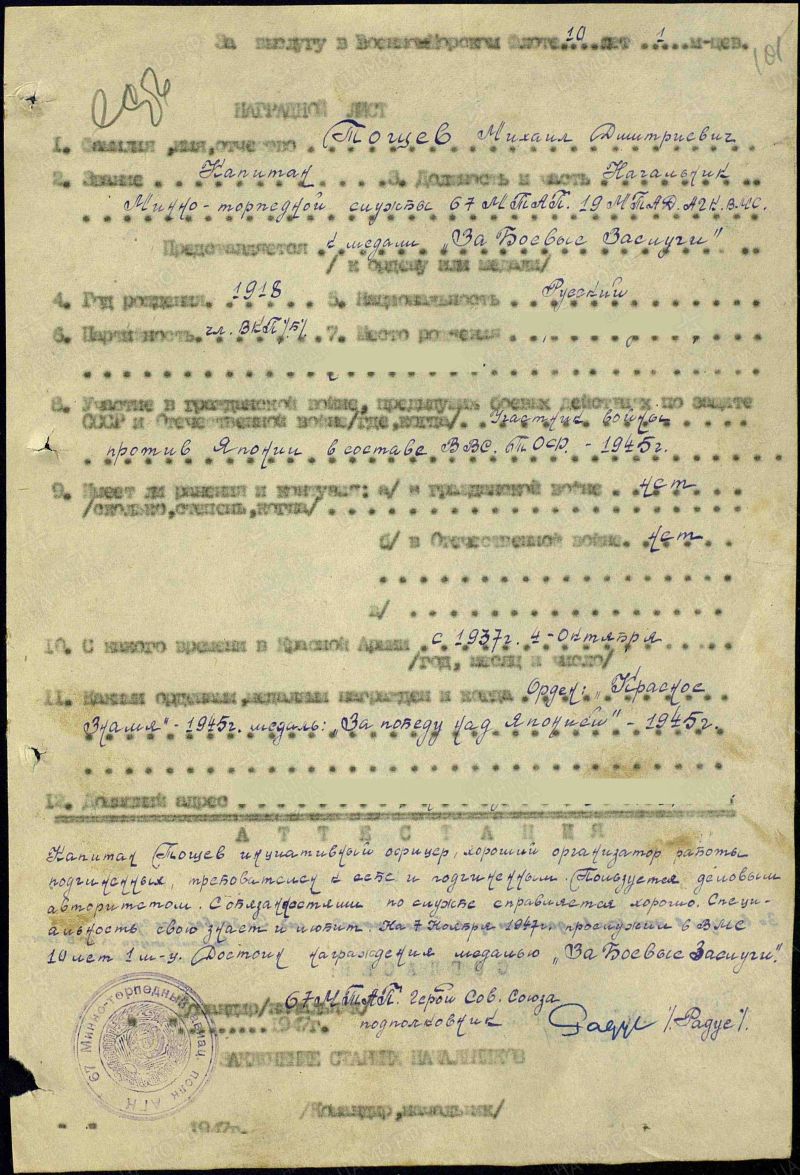 За выслугу в Военно-Морском Флоте....10 лет .....1 м-цев.
101
НАГРАДНОЙ ЛИСТ
1. Фамилия, имя, отчество Тощев Михаил Дмитриевич
2. Звание Капитан 3. Должность и часть Начальник
Минно-торпедной службы 67 МТАП. 19 МТАД. АГК. ВМС.
Представляется к медали „За Боевые Заслуги"
/к ордену или медали/
4. Год рождения. 1918 5. Национальность Русский
6. Партийность. чл. ВКП/б/. 7. Место рождения
8. Участие в гражданской войне, предыдущих боевых действиях по защите
СССР и Отечественной войне/где, когда/. Участник войны
против Японии в составе ВВС. ТОФ. - 1945г.
9. Имеет ли ранения и контузии: а/ в гражданской войне нет
/сколько, степень, когда/
б/ в Отечественной войне. нет
в/
10. С какого времени в Красной Армии с 1937г. 4-Октября
/год, месяц и число/
11. Какими орденами, медалями награжден и когда Орден: „Красное
Знамя" - 1945г. медаль: „За победу над Японией" - 1945г.
12. Домашний адрес
АТТЕСТАЦИЯ
Капитан Тощев инициативный офицер, хороший организатор работы
подчиненных, требователен к себе и подчиненным. Пользуется деловым
авторитетом. С обязанностями по службе справляется хорошо. Специ-
альность свою знает и любит. На 7 Ноября 1947г. прослужил в ВМС
10 лет 1 м-ц. Достоин награждения медалью „За Боевые Заслуги".
Командир/начальник/ 67 МТАП. Герой Сов. Союза
1947г. подполковник /Радус/.
67 Минно-торпедный авиац. полк АГК
ЗАКЛЮЧЕНИЕ СТАРШИХ НАЧАЛЬНИКОВ
/Командир, начальник/
" " 1947г.